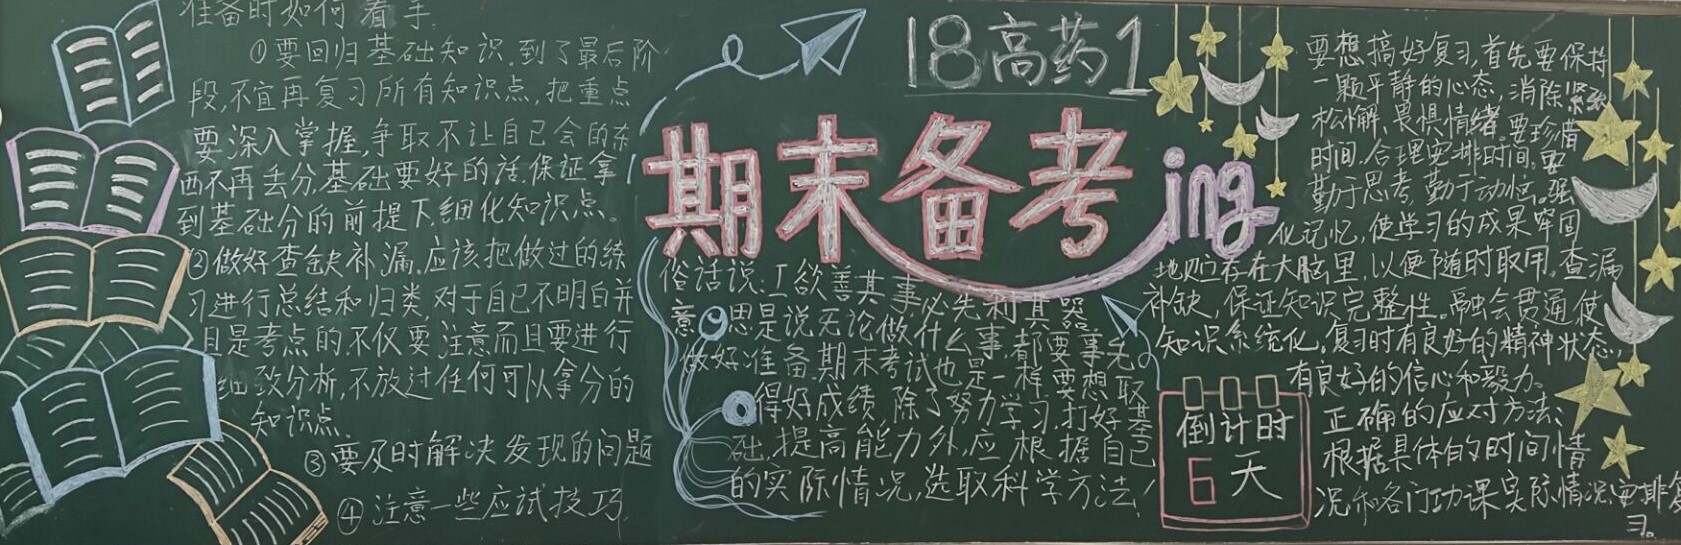 准备时如何着手
①要回归基础知识.到了最后阶
段,不宜再复习所有知识点,把重点
要深入掌握,争取不让自己会的东
西不再丢分,基础要好的话,保证拿
到基础分的前提下,细化知识点。
②做好查缺补漏.应该把做过的练
习进行总结和归类,对于自己不明白并
且是考点的.不仅要注意而且要进行
细致分析,不放过任何可以拿分的
知识点.
③要及时解决发现的问题
④注意一些应试技巧.
18高药1
期末备考ing
俗话说:工欲善其事,必先利其器
意思是说无论做什么事,都要事先
做好准备.期末考试也是一样要想取
得好成绩,除了努力学习,打好基
础,提高能力外,应根据自己
的实际情况,选取科学方法!
倒计时
6天
要想搞好复习,首先要保持
一颗平静的心态,消除紧张
松懈、畏惧情绪.要珍惜
时间.合理安排时间.要
勤于思考,勤于动恒。强
化记忆,使学习的成果牢固
地贮存在大脑里,以便随时取用.查漏
补缺,保证知识完整性。融会贯通使
知识系统化。复习时有良好的精神状态,
有良好的信心和毅力。
正确的应对方法:
根据具体的时间情
况和各门功课实际情况,安排复
习。